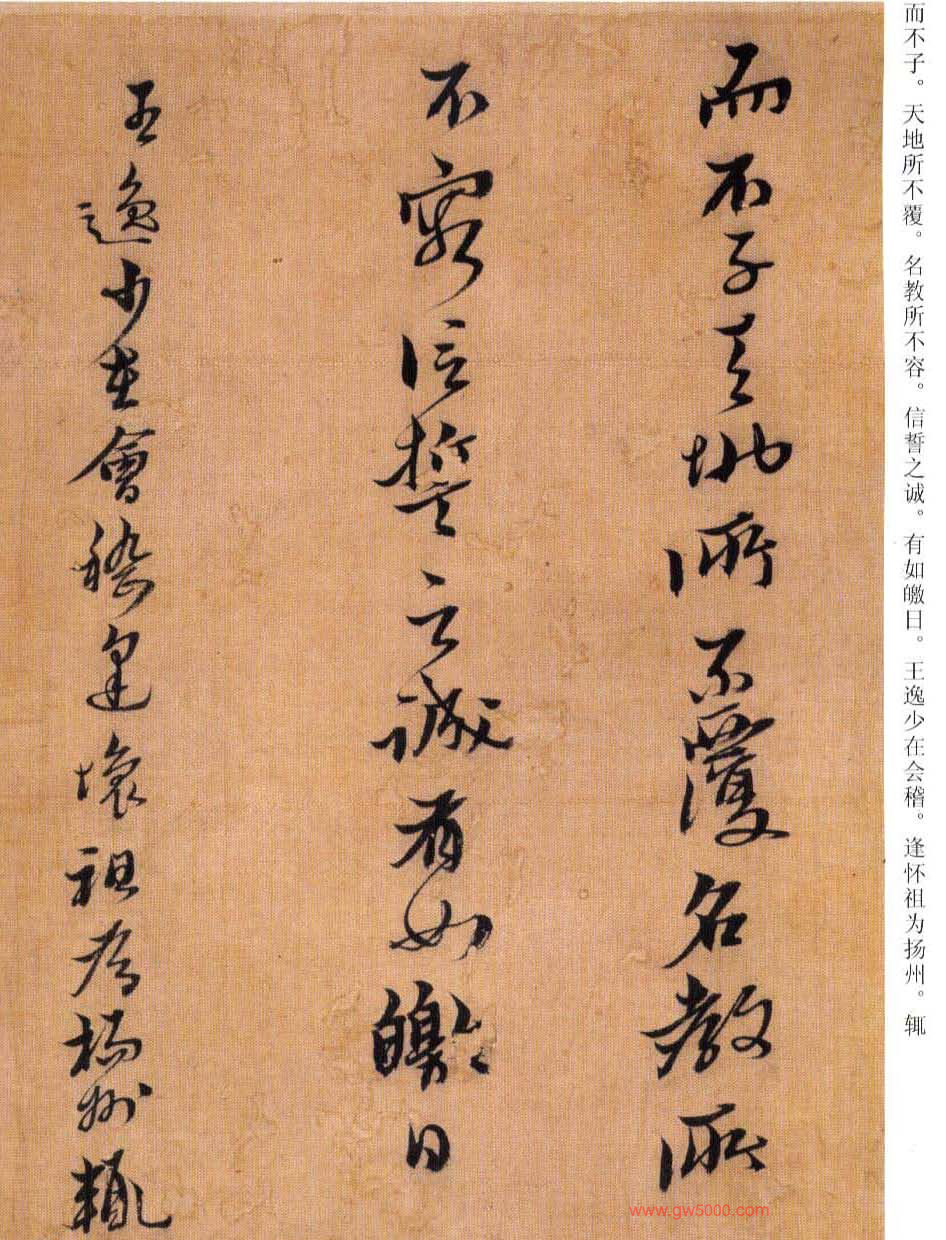 而不子。天地所不覆。名教所不容。信誓之诚。有如皦日。王逸少在会稽。逢怀祖为扬州。辄
而不子天地所不覆名教所
不容信誓之誠有如皦日
王逸少在會稽逢懷祖為揚州輒
www.gw5000.com